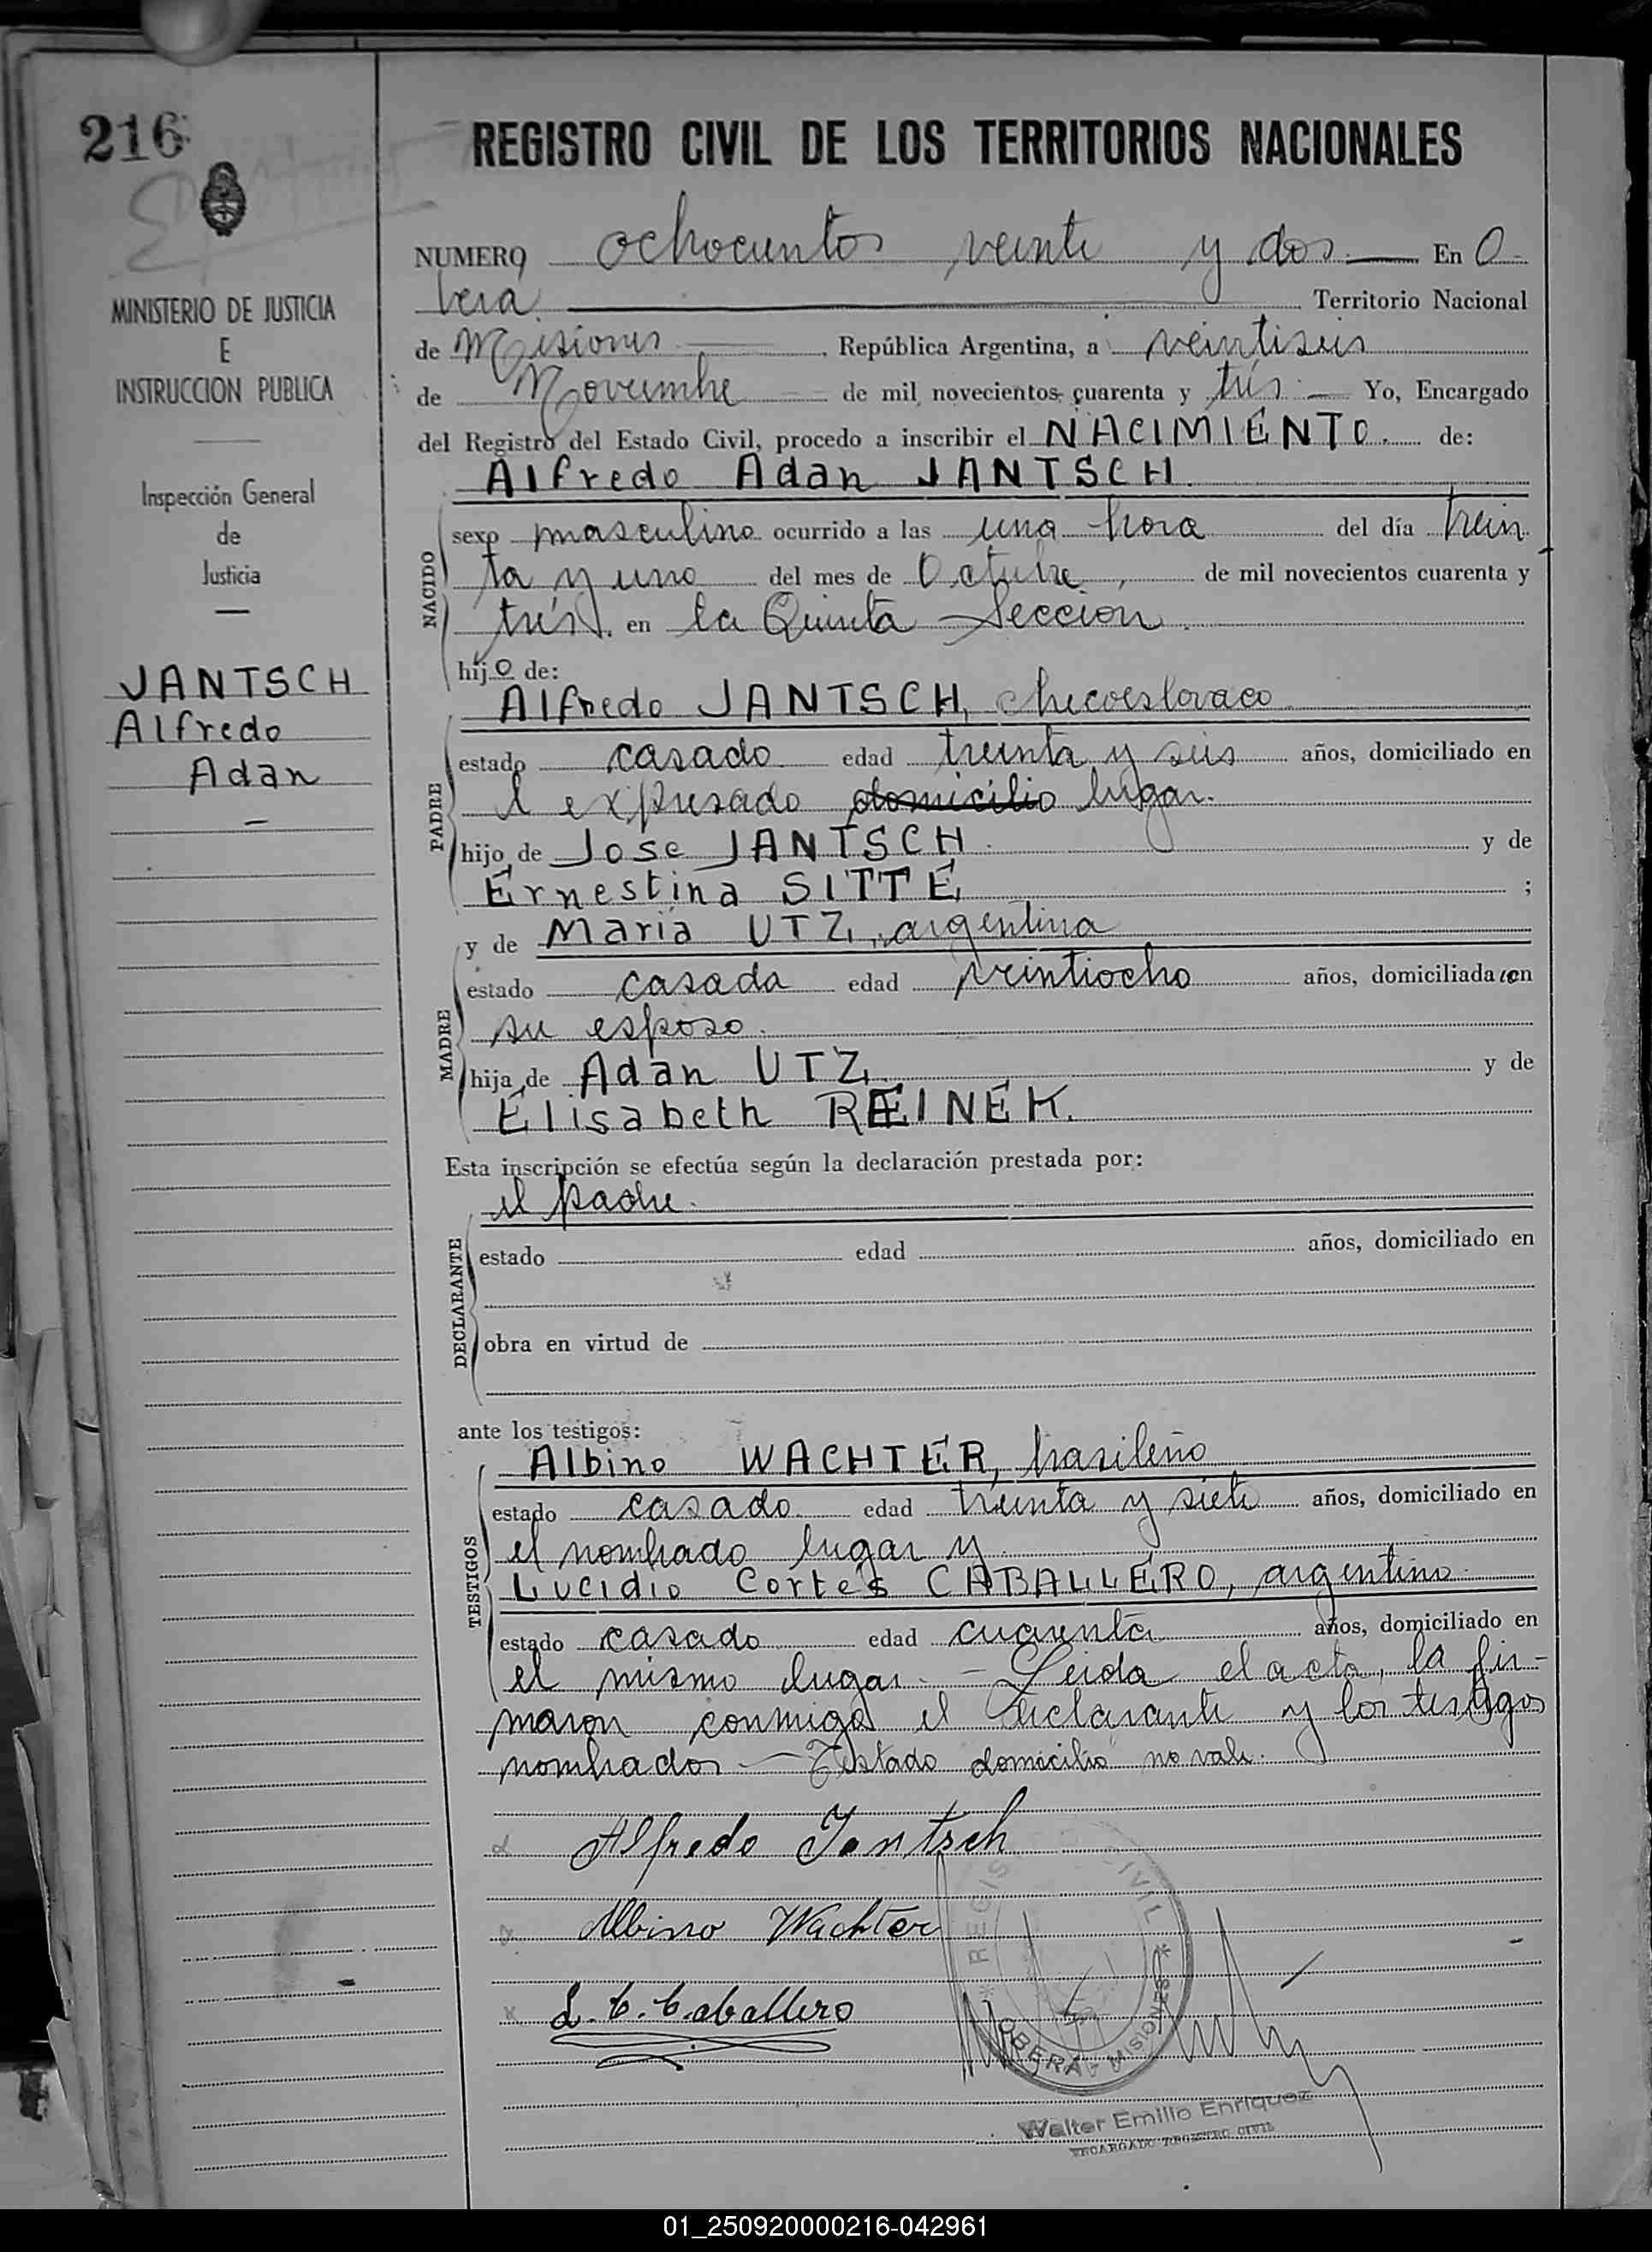 216
REGISTRO CIVIL DE LOS TERRITORIOS NACIONALES
MINISTERIO DE JUSTICIA
E
INSTRUCCION PUBLICA
Inspección General
de
Justicia
JANTSCH
Alfredo
Adan
NUMERO ochocientos veinte y dos En O-
berá Territorio Nacional
de Misiones República Argentina, a veintiseis
de Noviembre de mil novecientos cuarenta y trés Yo, Encargado
del Registro del Estado Civil, procedo a inscribir el NACIMIENTO de:
Alfredo Adan JANTSCH
NACIDO
sexo masculino ocurrido a las una hora del día trein
ta y uno del mes de Octubre, de mil novecientos cuarenta y
trés, en la Quinta Sección.
hijo de:
PADRE
Alfredo JANTSCH, checoeslovaco
estado casado edad treinta y seis años, domiciliado en
el expresado domicilio lugar.
hijo de Jose JANTSCH y de
Ernestina SITTE ;
MADRE
y de Maria UTZ, argentina
estado casada edad veintiocho años, domiciliada con
su esposo.
hija de Adan UTZ y de
Elisabeth REINEK.
Esta inscripción se efectúa según la declaración prestada por:
DECLARANTE
el padre.
estado edad años, domiciliado en
obra en virtud de
ante los testigos:
TESTIGOS
Albino WACHTER, brasileño
estado casado edad treinta y siete años, domiciliado en
el nombrado lugar y
Lucidio Cortés CABALLERO, argentino
estado casado edad cuarenta años, domiciliado en
el mismo lugar. - Leida el acta, la fir-
maron conmigo el declarante y los testigos
nombrados - Testado domicilio no vale.
Alfredo Jantsch
Albino Wachter
L. C. Caballero
REGIS CIVIL
OBERÁ - MISIONES
Walter Emilio Enriquez
ENCARGADO REGISTRO CIVIL
01_250920000216-042961